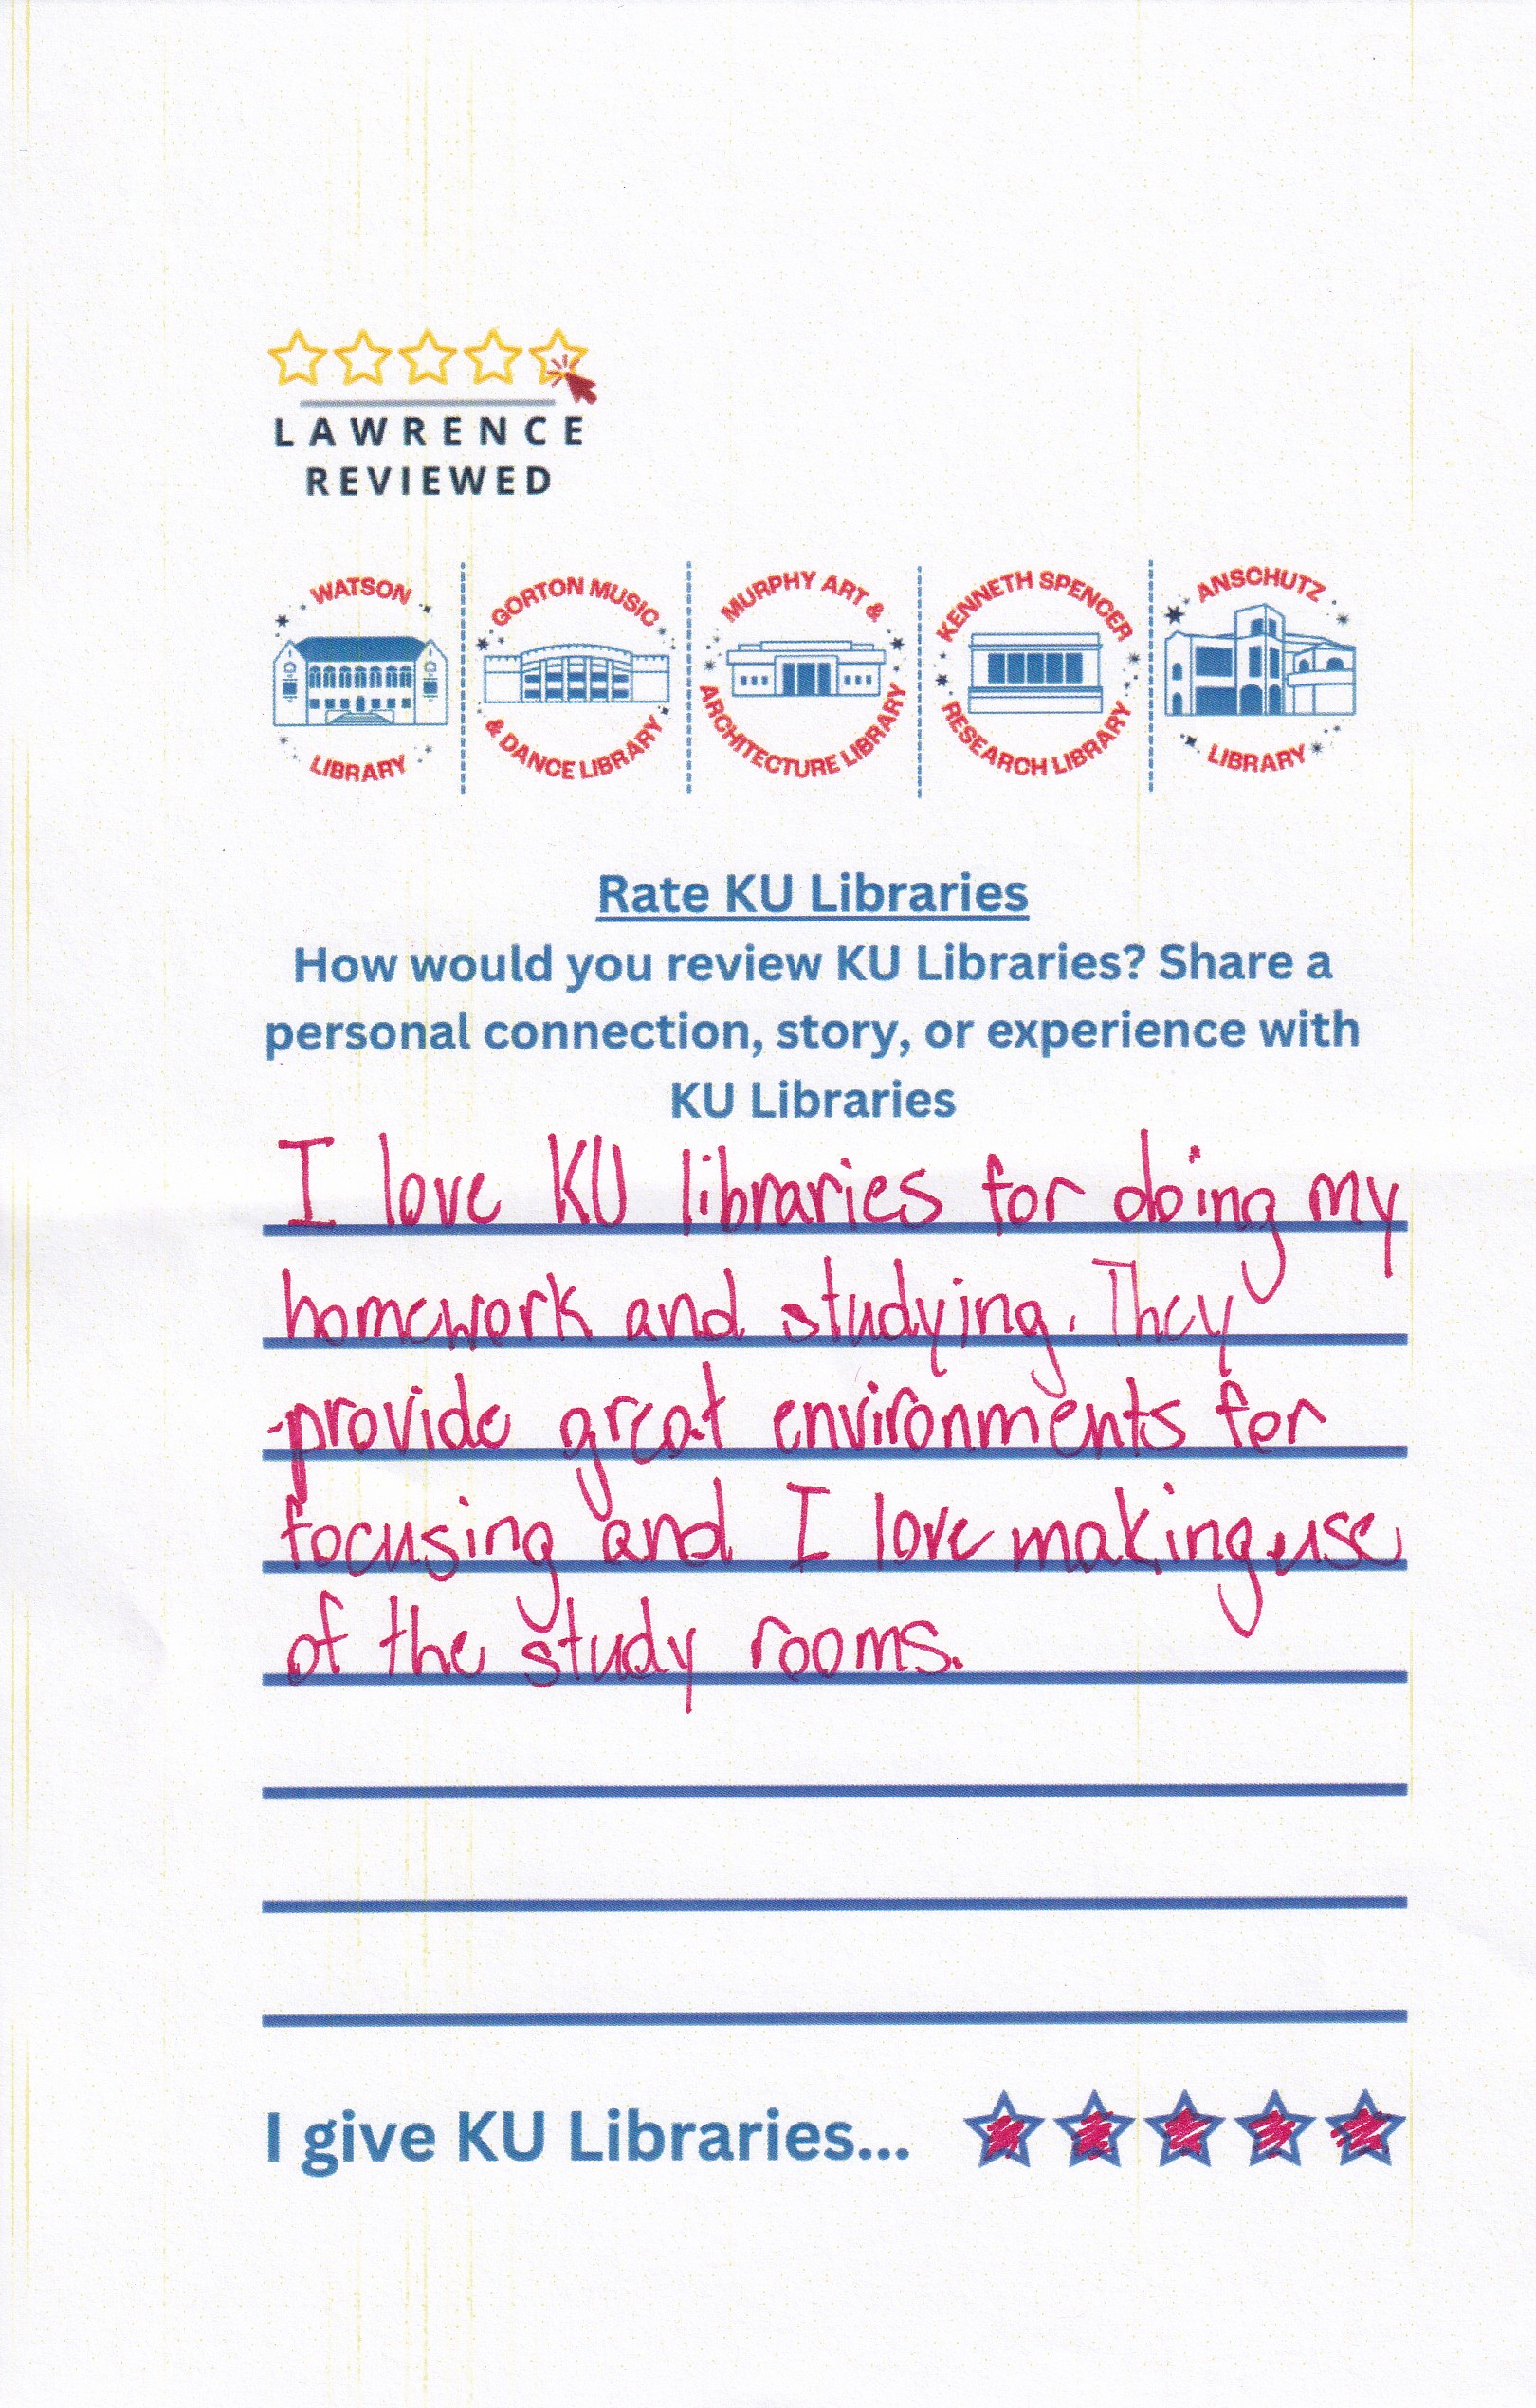 LAWRENCE
REVIEWED
WATSON
LIBRARY
GORTON MUSIC
& DANCE LIBRARY
MURPHY ART &
ARCHITECTURE LIBRARY
KENNETH SPENCER
RESEARCH LIBRARY
ANSCHUTZ
LIBRARY
Rate KU Libraries
How would you review KU Libraries? Share a
personal connection, story, or experience with
KU Libraries
I love KU libraries for doing my
homework and studying. They
provide great environments for
focusing and I love making use
of the study rooms.
I give KU Libraries...